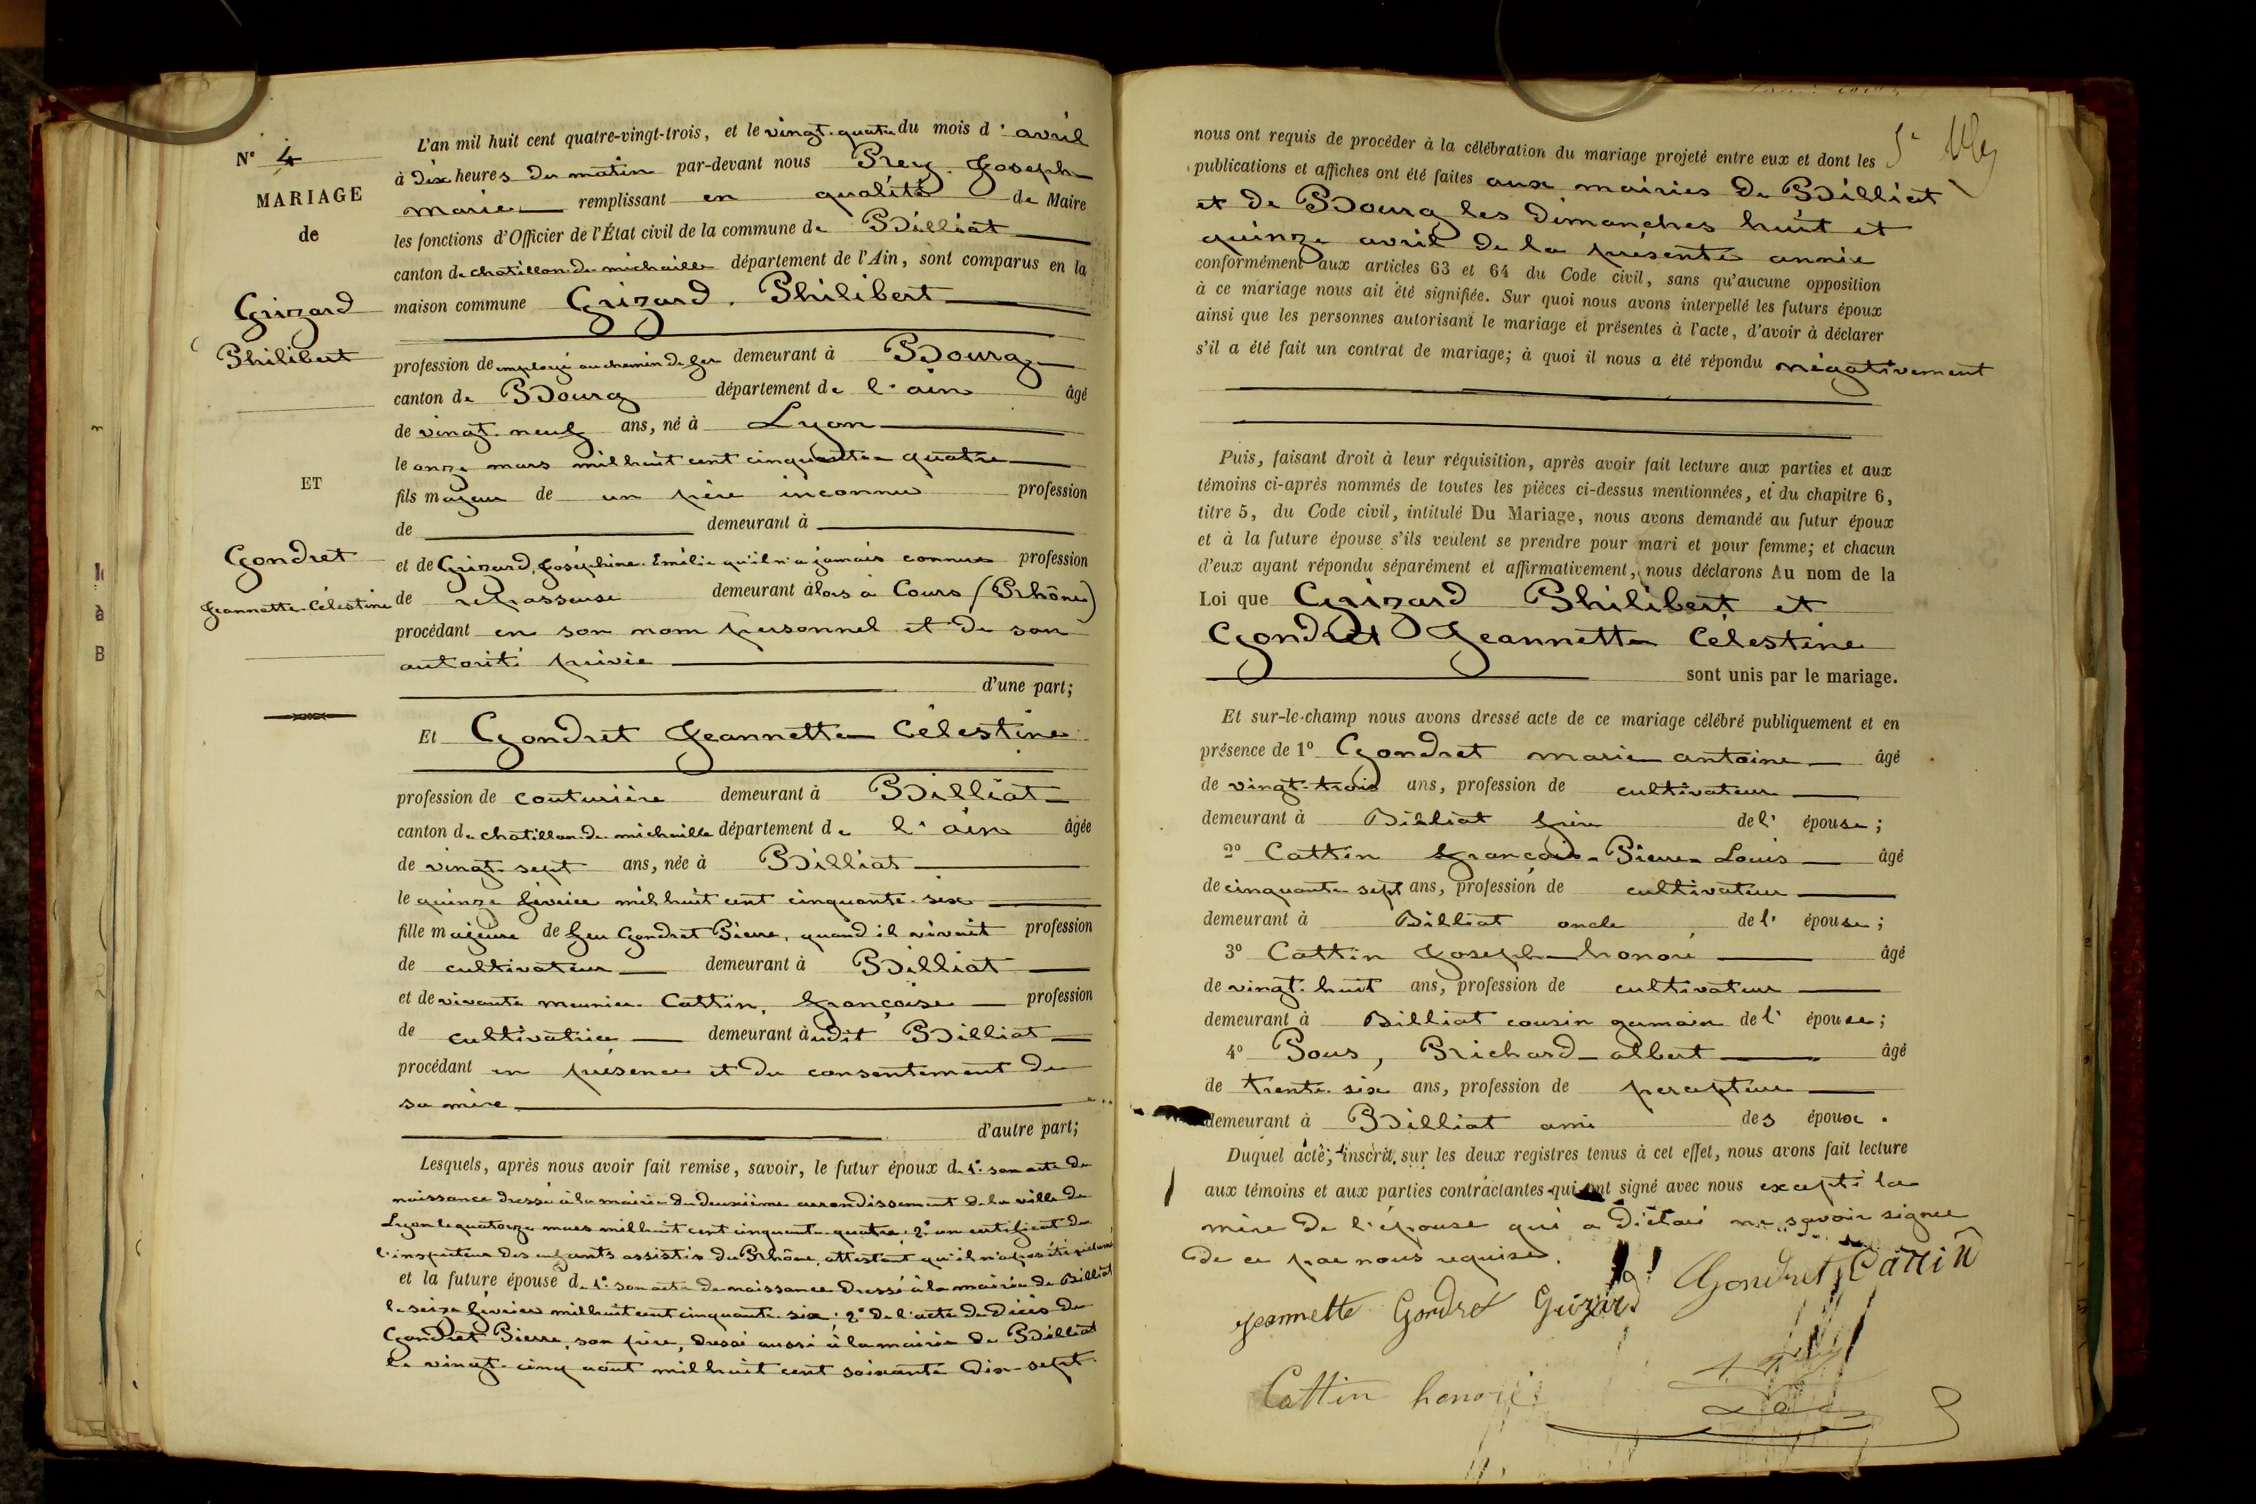 N° 4
MARIAGE
de
Grizard
Philibert
ET
Gondret
Jeannette Célestine
L'an mil huit cent quatre-vingt-trois, et le vingt-quatre du mois d'avril
à dix heures du matin par-devant nous Prey Joseph
marie remplissant en qualité de Maire
les fonctions d'Officier de l'État civil de la commune de Billiat
canton de chatillon de michaille département de l'Ain, sont comparus en la
maison commune Grizard Philibert
profession de employé au chemin de fer demeurant à Bourg
canton de Bourg département de l'ain âgé
de vingt neuf ans, né à Lyon
le onze mars mil huit cent cinquante quatre
fils majeur de un père inconnu profession
de demeurant à
et de Grizard, Joséphine Emélie qu'il n'a jamais connue profession
de repasseuse demeurant àlors à Cours (Rhône)
procédant en son nom personnel et de son
autorité privée
d'une part;
Et Gondret Jeannette Célestine
profession de couturière demeurant à Billiat
canton de chatillon de michaille département de l'ain âgée
de vingt sept ans, née à Billiat
le quinze février mil huit cent cinquante six
fille majeure de feu Gondret Pierre, quand il vivait profession
de cultivateur demeurant à Billiat
et de vivante meunier Cattin, françoise profession
de cultivatrice demeurant àudit Billiat
procédant en présence et du consentement de
sa mère
d'autre part;
Lesquels, après nous avoir fait remise, savoir, le futur époux de 1° son acte de
naissance dressé à la mairie du deuxième arrondissement de la ville de
Lyon le quatorze mars mil huit cent cinquante quatre; 2° un certificat de
l'inspecteur des enfants assistés du Rhône, attestant qu'il n'a pas été réclamé
et la future épouse de 1° son acte de naissance dressé à la mairie de Billiat
le seize février mil huit cent cinquante six; 2° de l'acte de décès de
Gondret Pierre, son père, dressé aussi à la mairie de Billiat
le vingt-cinq aout mil huit cent soixante dix-sept.
nous ont requis de procéder à la célébration du mariage projeté entre eux et dont les
publications et affiches ont été faites aux mairies de Billiat
et de Bourg les dimanches huit et
quinze avril de la présente année
conformément aux articles 63 et 64 du Code civil, sans qu'aucune opposition
à ce mariage nous ait été signifiée. Sur quoi nous avons interpellé les futurs époux
ainsi que les personnes autorisant le mariage et présentes à l'acte, d'avoir à déclarer
s'il a été fait un contrat de mariage; à quoi il nous a été répondu négativement
Puis, faisant droit à leur réquisition, après avoir fait lecture aux parties et aux
témoins ci-après nommés de toutes les pièces ci-dessus mentionnées, et du chapitre 6,
titre 5, du Code civil, intitulé Du Mariage, nous avons demandé au futur époux
et à la future épouse s'ils veulent se prendre pour mari et pour femme; et chacun
d'eux ayant répondu séparément et affirmativement, nous déclarons Au nom de la
Loi que Grizard Philibert et
Gondret Jeannette Célestine
sont unis par le mariage.
Et sur-le-champ nous avons dressé acte de ce mariage célébré publiquement et en
présence de 1° Gondret marie antoine âgé
de vingt-trois ans, profession de cultivateur
demeurant à Billiat frère de l'épouse;
2° Cattin françois Pierre Louis âgé
de cinquante sept ans, profession de cultivateur
demeurant à Billiat oncle de l'épouse;
3° Cattin Joseph honoré âgé
de vingt huit ans, profession de cultivateur
demeurant à Billiat cousin germain de l'épouse;
4° Pous, Richard albert âgé
de trente six ans, profession de percepteur
demeurant à Billiat ami des époux.
Duquel acte, inscrit sur les deux registres tenus à cet effet, nous avons fait lecture
aux témoins et aux parties contractantes qui ont signé avec nous excepté la
mère de l'épouse qui a déclaré ne savoir signer
de ce par nous requise.
jeannette Gondret Grizard Gondret Cattin
Cattin honoré